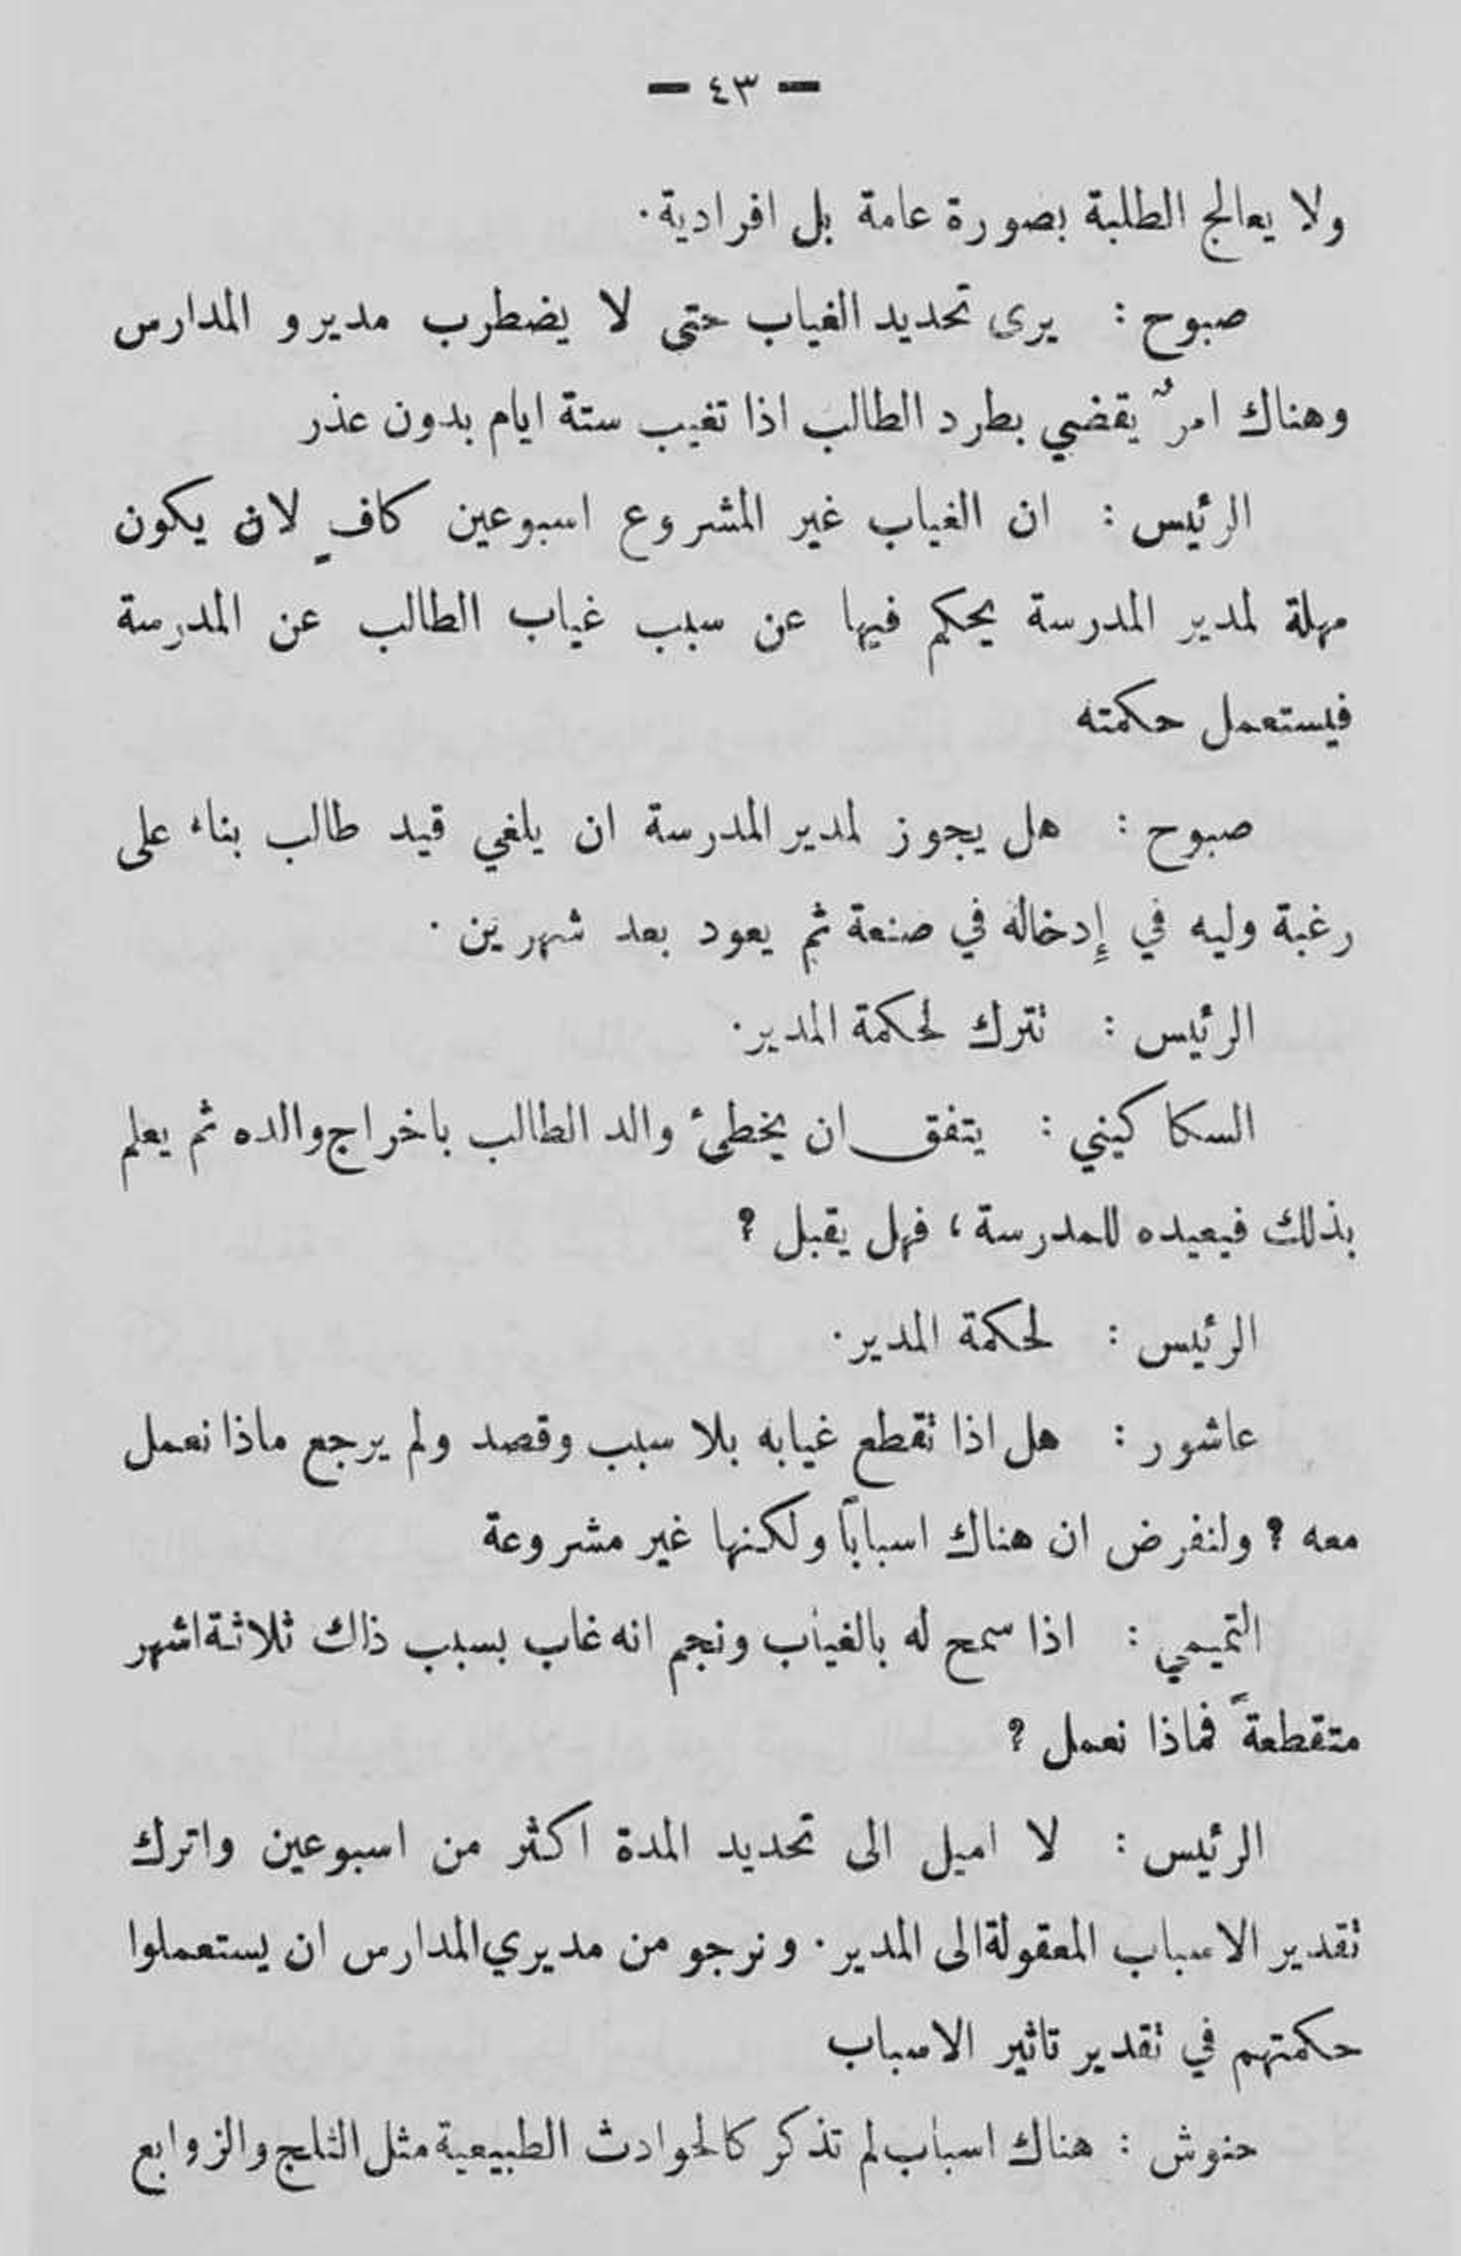 — ٤٣ —
ولا يعالج الطلبة بصورة عامة بل افرادية.
صبوح : يرى تحديد الغياب حتى لا يضطرب مديرو المدارس
وهناك امرٌ يقضي بطرد الطالب اذا تغيب ستة ايام بدون عذر
الرئيس : ان الغياب غير المشروع اسبوعين كافٍ لان يكون
مهلة لمدير المدرسة يحكم فيها عن سبب غياب الطالب عن المدرسة
فيستعمل حكمته
صبوح : هل يجوز لمدير المدرسة ان يلغي قيد طالب بناء على
رغبة وليه في إدخاله في صنعة ثم يعود بعد شهرين .
الرئيس : تترك لحكمة المدير.
السكاكيني : يتفق ان يخطئ والد الطالب باخراج والده ثم يعلم
بذلك فيعيده للمدرسة ، فهل يقبل ؟
الرئيس : لحكمة المدير.
عاشور : هل اذا تقطع غيابه بلا سبب وقصد ولم يرجع ماذا نعمل
معه ؟ ولنفرض ان هناك اسباباً ولكنها غير مشروعة
التميمي : اذا سمح له بالغياب ونجم انه غاب بسبب ذاك ثلاثة اشهر
متقطعةً فماذا نعمل ؟
الرئيس : لا اميل الى تحديد المدة اكثر من اسبوعين واترك
تقدير الاسباب المعقولة الى المدير . ونرجو من مديري المدارس ان يستعملوا
حكمتهم في تقدير تاثير الاسباب
حنوش : هناك اسباب لم تذكر كالحوادث الطبيعية مثل الثلج والزوابع